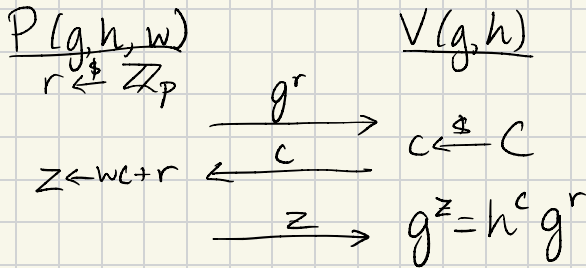 P(g,h,w) V(g,h)
r <-$ ℤp
g^r
c c <-$ C
z←wc+r
z g^z = h^c g^r